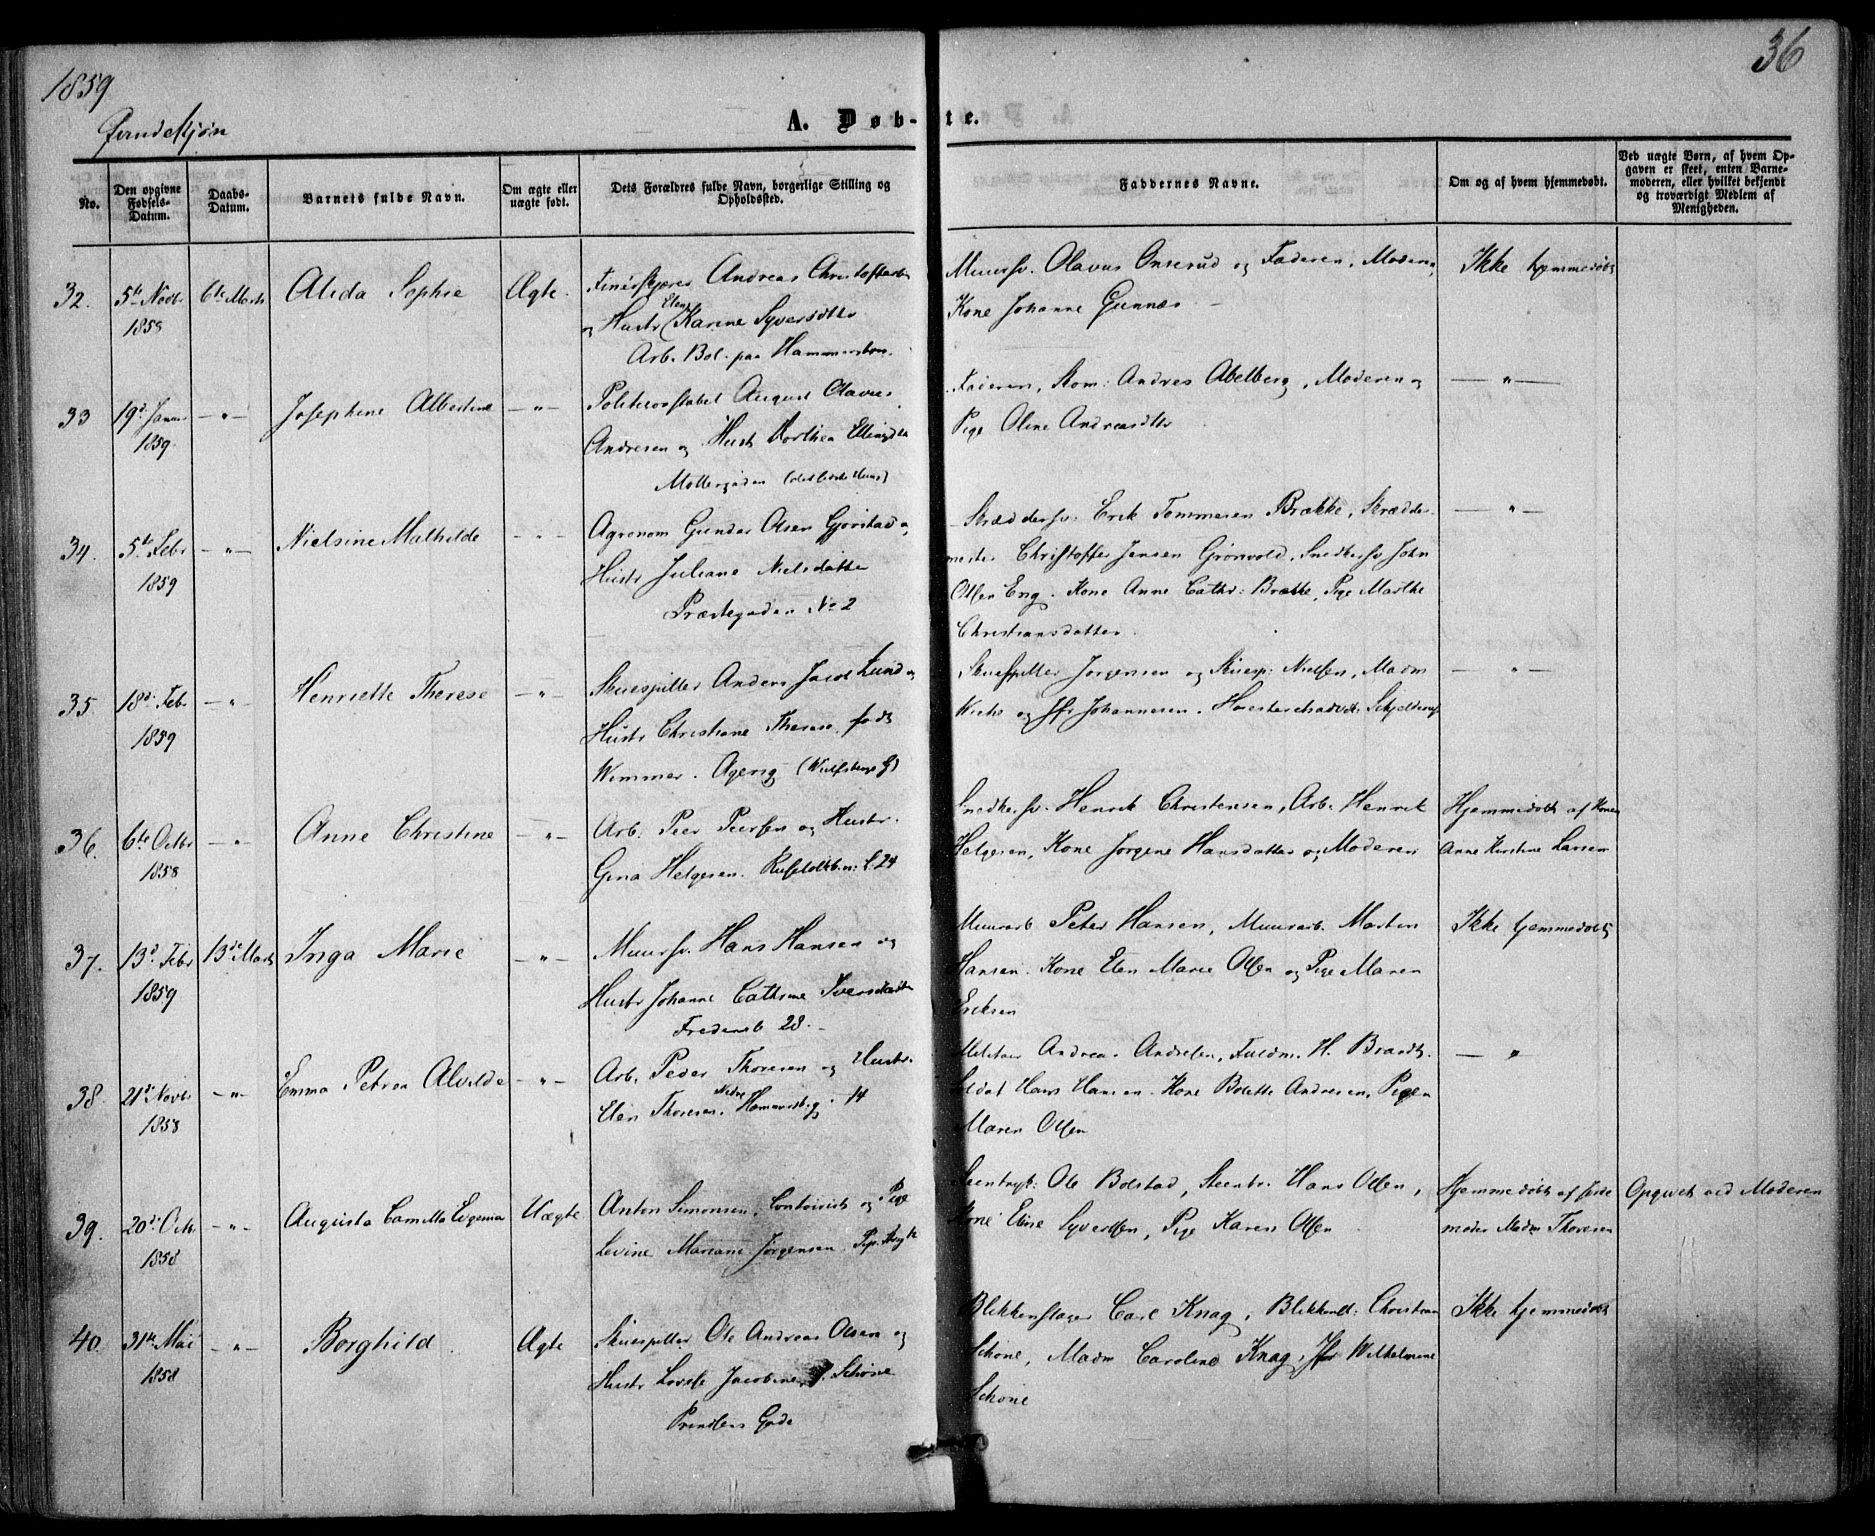 1859
36
Qvindekjøn
A. Døbte.
No.
Den opgivne Fødsels-Datum.
Daabs-Datum.
Barnets fulde Navn.
Om ægte eller uægte født.
Dets Forældres fulde Navn, borgerlige Stilling og Opholdssted.
Faddernes Navne.
Om og af hvem hjemmedøbt.
Ved uægte Børn, af hvem Opgaven er skeet, enten Barnemoderen, eller hvilket bekjendt og troværdigt Medlem af Menigheden.
32. 5te Novbr 1858 6te Marts Alida Sophie Ægte.
Andreas Christoffersen
og Hustr Elen Karine Syversdtr
Arb. Bol. paa Hammersborg
Muursv. Olavus Onserud og Faderen, Moderen,
Kone Johanne Gunnæs
Ikke hjemmedøbt
33 19d. Januar 1859. —"— Josephine Albertine —"—
Politiconstabel August Olavus
Andresen og Hustr Dorthea Ellingsdtr
Møllergaden
Faderen, Kom: Andres Abelberg, Moderen og
Pige Oline Andreasdtr
—"—
34. 5te Febr 1859 —"— Nielsine Mathilde —"—
Agronom Gunder Olsen Gjerstad og
Hustr Juliane Nielsdatter
Præstegaden No 2
Skræddersv: Erik Tommesen Brække, Skrædder-
mester Christoffer Jensen Grønvold, Snedkersv John
Olsen Eng. Kone Anne Cathr: Brække, Pige Marthe
Christiansdatter.
—"—
35 18d. Febr 1859 —"— Henriette Therese —"—
Skuespiller Anders Jacob Lund og
Hustr Christiane Therese født
Wimmer. Agerg
Skuespiller Jørgensen og Skuesp: Nielsen, Madm
og Jfr Johannesen. Schjelderup
—"—
36. 6te Octbr 1858 —"— Anne Christine —"—
Arb. Peer Peersen og Hustr.
Gina Helgesen. 24
Snedkersv. Henrik Christensen, Arb. Henrik
Helgesen, Kone Jørgene Hansdatter og Moderen
Hjemmedøbt af Konen
Anne Kirstine Larsen
37. 13d. Febr 1859 13de Marts Inga Marie —"—
Muursv. Hans Hansen og
Hustr Johanne Cathrine Iversdatter
Fredensb 28.
Muurarb Peter Hansen, Muurarb. Morten
Hansen. Kone Elen Marie Olsen og Pige Maren
Eriksen
Ikke hjemmedøbt
38 21d. Novbr 1858 —"— Emma Petrea Alvilde —"—
Arb. Peder Thoresen og Hustr.
Elen Thoresen. Nedre Hammersbg. 14
Andreas Andresen, Fuldm. H. Brandt.
Soldat Hans Hansen. Kone Bolette Andresen, Pigen
Maren Olsen
—"—
39. 20d. Octbr 1858 —"— Augusta Camilla Eugenia Uægte
Anton Simonsen, Contoirist og Pige
Levine Mariane Jørgensen.
Steentryk: Ole Bolstad, Steentr. Hans Olsen,
Kone Eline Syversen, Pige Karen Olsen
Hjemmedøbt af Jorde-
moder Madm Thoresen
Opgivet ved Moderen
40. 31te Mai 1858 —"— Borghild Ægte
Skuespiller Ole Andreas Olsen og
Hustr Lovise Jacobine f. Schøne
Prindsens Gade
Blikkenslager Carl Knag, Blikkensl: Christian
Schøne, Madm Caroline Knag, Jfr Wilhelmine
Schøne
Ikke hjemmedøbt